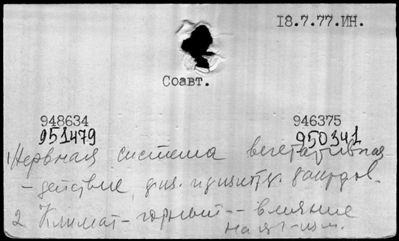 18.7.77.ИН.
Соавт.
948634 946375
951479 950341
1 Нервная система вегетативная
- действие, физ.
2 Климат-горный -- влияние
на